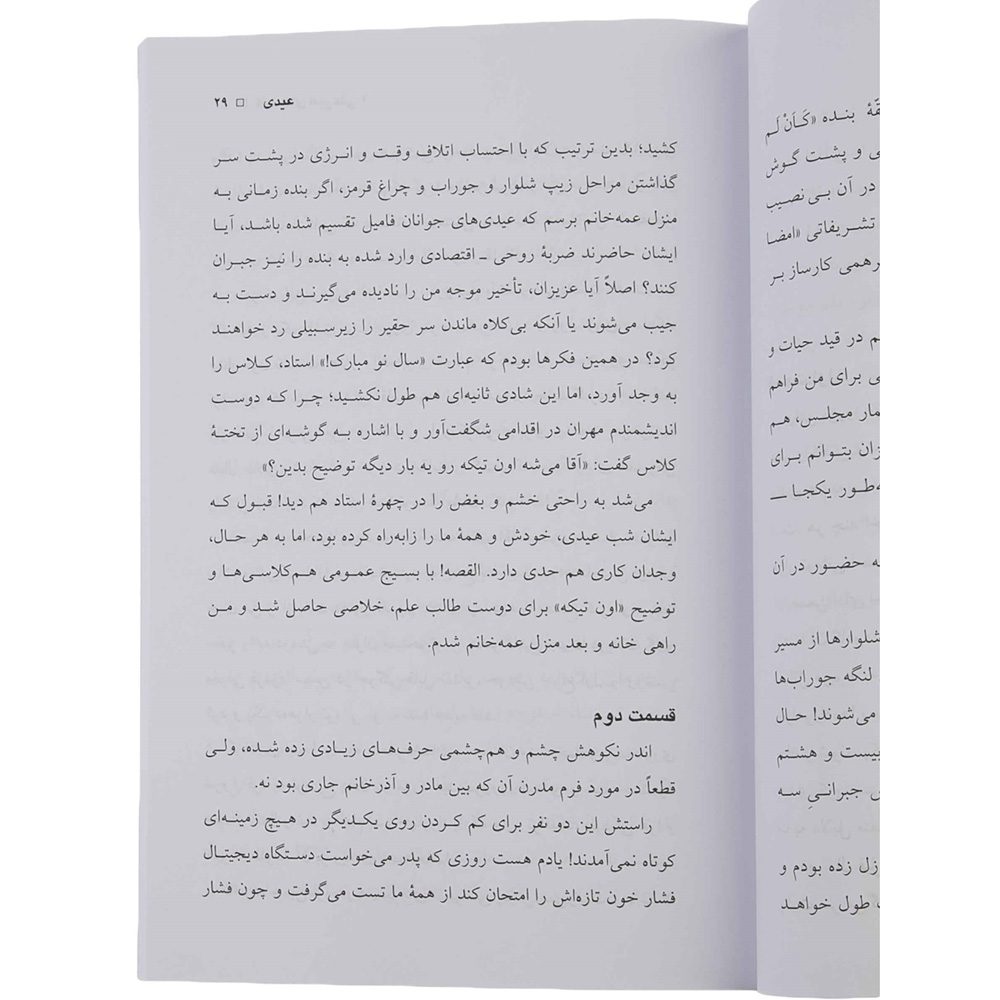 عیدی □ ۲۹
کشید؛ بدین ترتیب که با احتساب اتلاف وقت و انرژی در پشت سر
گذاشتن مراحل زیپ شلوار و جوراب و چراغ قرمز، اگر بنده زمانی به
منزل عمه‌خانم برسم که عیدی‌های جوانان فامیل تقسیم شده باشد، آیا
ایشان حاضرند ضربهٔ روحی ـ اقتصادی وارد شده به بنده را نیز جبران
کنند؟ اصلاً آیا عزیزان، تأخیر موجه من را نادیده می‌گیرند و دست به
جیب می‌شوند یا آنکه بی‌کلاه ماندن سر حقیر را زیرسبیلی رد خواهند
کرد؟ در همین فکرها بودم که عبارت «سال نو مبارک!» استاد، کلاس را
به وجد آورد، اما این شادی ثانیه‌ای هم طول نکشید؛ چرا که دوست
اندیشمندم مهران در اقدامی شگفت‌آور و با اشاره به گوشه‌ای از تختهٔ
کلاس گفت: «آقا می‌شه اون تیکه رو یه بار دیگه توضیح بدین؟»
می‌شد به راحتی خشم و بغض را در چهرهٔ استاد هم دید! قبول که
ایشان شب عیدی، خودش و همهٔ ما را زابه‌راه کرده بود، اما به هر حال،
وجدان کاری هم حدی دارد. القصه! با بسیج عمومی هم‌کلاسی‌ها و
توضیح «اون تیکه» برای دوست طالب علم، خلاصی حاصل شد و من
راهی خانه و بعد منزل عمه‌خانم شدم.
قسمت دوم
اندر نکوهش چشم و هم‌چشمی حرف‌های زیادی زده شده، ولی
قطعاً در مورد فرم مدرن آن که بین مادر و آذرخانم جاری بود نه.
راستش این دو نفر برای کم کردن روی یکدیگر در هیچ زمینه‌ای
کوتاه نمی‌آمدند! یادم هست روزی که پدر می‌خواست دستگاه دیجیتال
فشار خون تازه‌اش را امتحان کند از همهٔ ما تست می‌گرفت و چون فشار
بنده «کَأَنْ لَم
و پشت گوش
در آن بی‌نصیب
تشریفاتی «امضا
کارساز بر
در قید حیات و
برای من فراهم
مجلس، هم
بتوانم برای
یکجا ـ
حضور در آن
شلوارها از مسیر
لنگه جوراب‌ها
می‌شوند! حال
بیست و هشتم
جبرانیِ سه
زده بودم و
طول خواهد